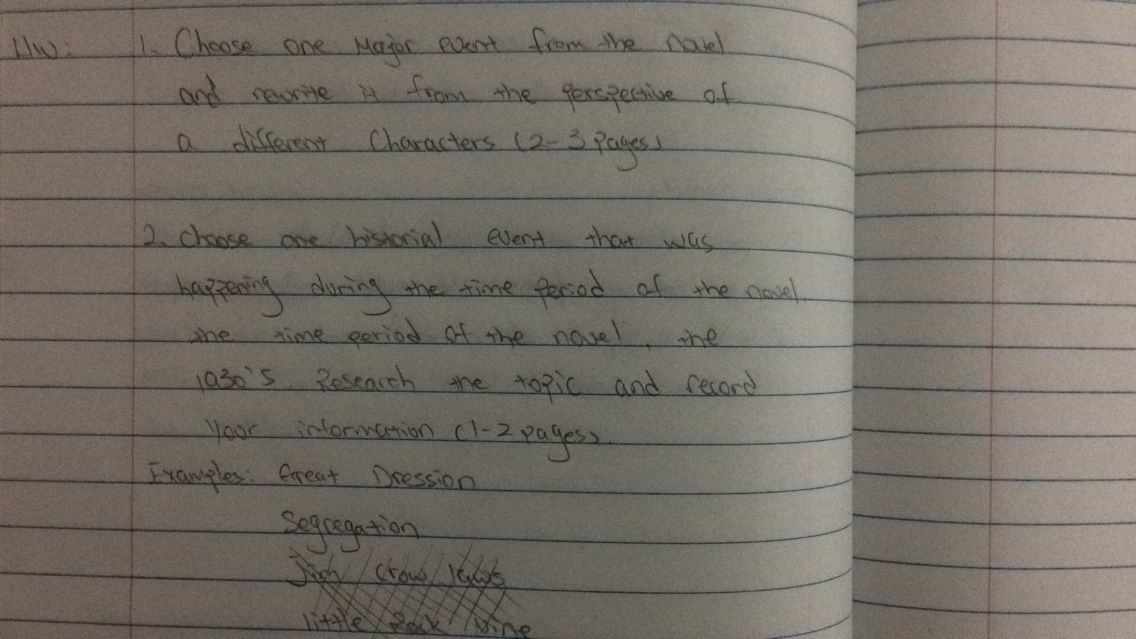 HW: 1. Choose one Major event from the novel
and rewrite it from the perspective of
a different characters (2-3 pages)
2. choose one historial event that was
happening during the time period of the novel
the time period of the novel, the
1930's. Research the topic and record
your information (1-2 pages).
Examples: Great Dression
Segregation
Jim Crow laws
little Rock nine